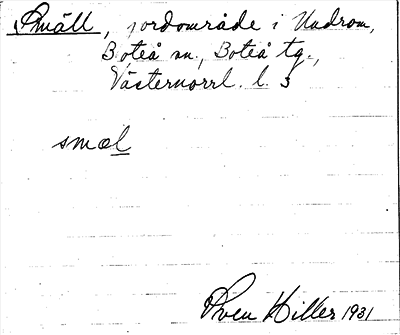 Smäll, jordområde i Undrom,
Boteå sn., Boteå tg.,
Västernorrl. l. 3
smæl
Sven Hiller 1931